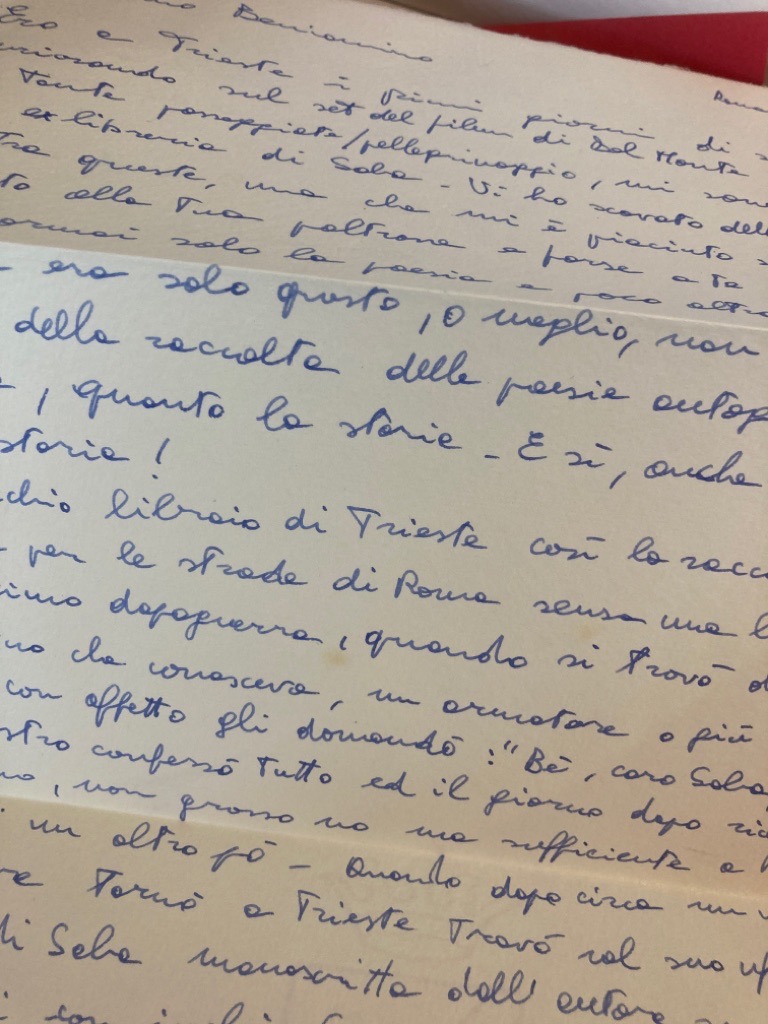 Beniamino
Roma
Ero a Trieste i primi giorni di
curiosando sul set del film di Dal Monte
Tante passeggiate/pellegrinaggio, mi sono
ex libreria di Saba - Vi ho scovato delle
Tra queste, una che mi è piaciuta
alla Tua poltrona e forse a te
ormai solo la poesia e poco altro
era solo questo, o meglio, non
della raccolta delle poesie autog
, quanto la storia - E sì, anche
storia!
chio libraio di Trieste così la racco
per le strade di Roma senza una l
imo dopoguerra, quando si trovò d
no che conosceva, un armatore o più
con affetto gli domandò: "Bè, caro Saba,
stro confessò Tutto ed il giorno dopo ric
no, non grosso no ma sufficiente a
un altro pò - Quando dopo circa un
re Tornò a Trieste Trovò sul suo
di Saba manoscritta dall'autore